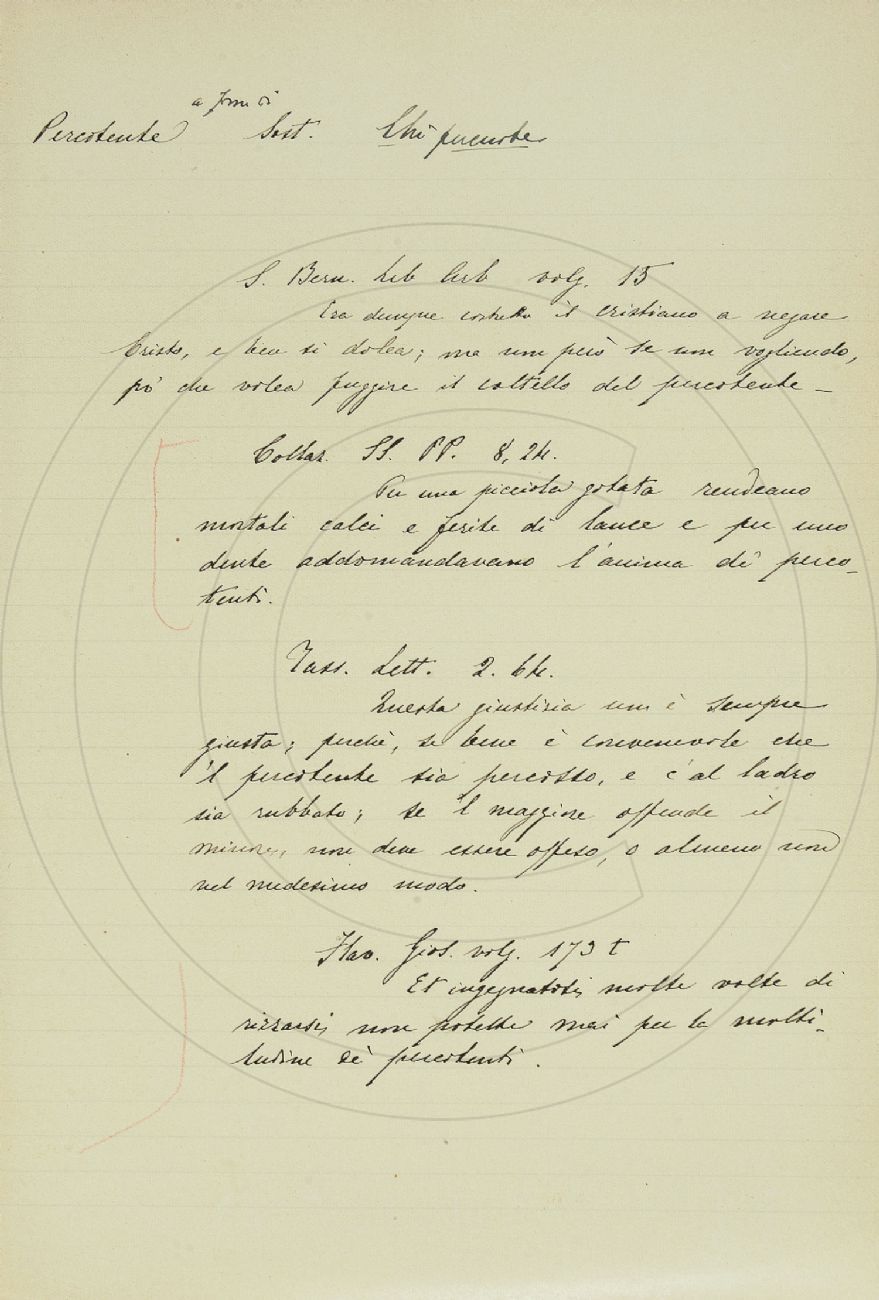 a forma di
Percotente Sost. Chi percuote
S. Bern. Lib Arb volg. 15
Era dunque costretto il cristiano a negare
Cristo, e ben si dolea; ma non però se non vogliendo,
però che volea fuggire il coltello del percotente –
Collaz. SS. PP. 8, 24.
Per una picciola gotata rendeano
mortali calci e ferite di lance e per uno
dente addomandavano l'anima de' perco-
tenti.
Tass. Lett. 2. 64.
Questa giustizia non è sempre
giusta; perchè, se bene è convenevole che
'l percotente sia percosso, e c'al ladro
sia rubbato; se 'l maggiore offende il
minore, non deve essere offeso, o almeno non
nel medesimo modo.
Flav. Gios. volg. 173 t
Et ingegnatosi molte volte di
rizzarsi, non potette mai per la molti-
tudine de' percotenti.